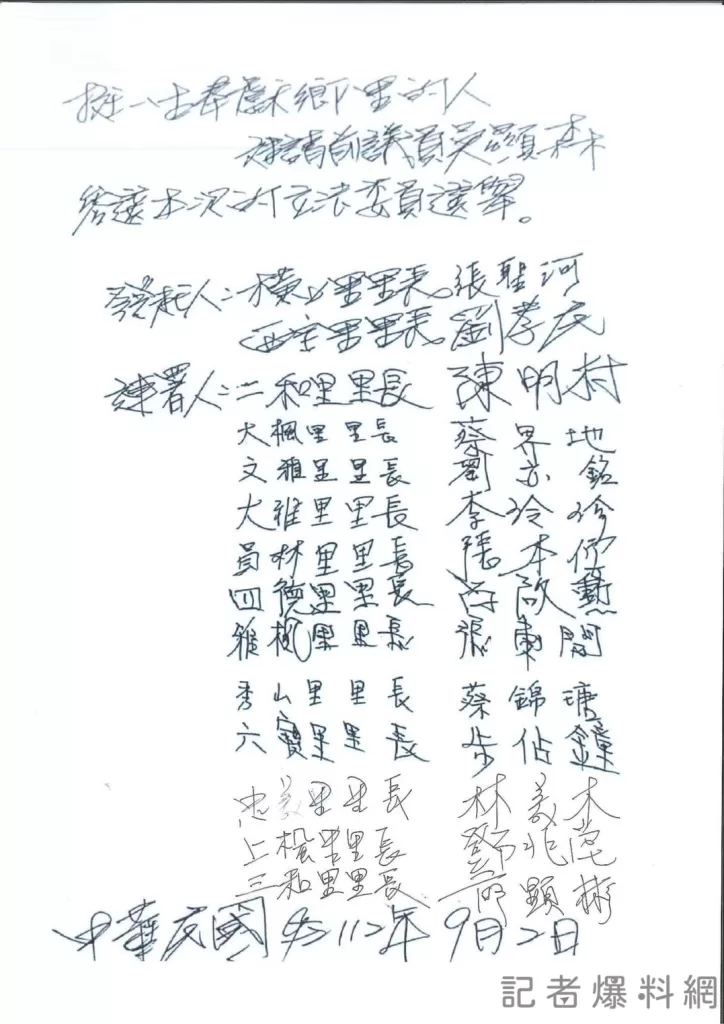 奉獻鄉里的人
連請前議員吳顯森
參選本次的立法委員選舉。
發起人:橫山里里長。張聖河
西寶里里長。劉孝民
連署人:二和里里長 陳明村
大楓里里長 蔡界地
文雅里里長 劉 銘
大雅里里長 李玲珍
員林里里長 張本
四德里里長
雅楓里里長 張
秀山里里長 蔡錦
六寶里里長
忠義里里長 林美木
上楓里里長 鄧兆
三和里里長 顯彬
中華民國 112年9月2日
記者爆料網